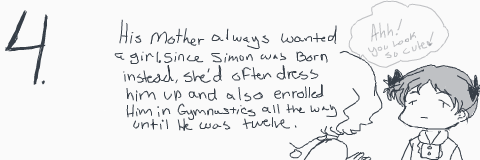 4.
His Mother always wanted
a girl. Since Simon was Born
instead, she'd often dress
him up and also enrolled
Him in Gymnastics all the way
until He was twelve.
Ahh!
you look
so cute!